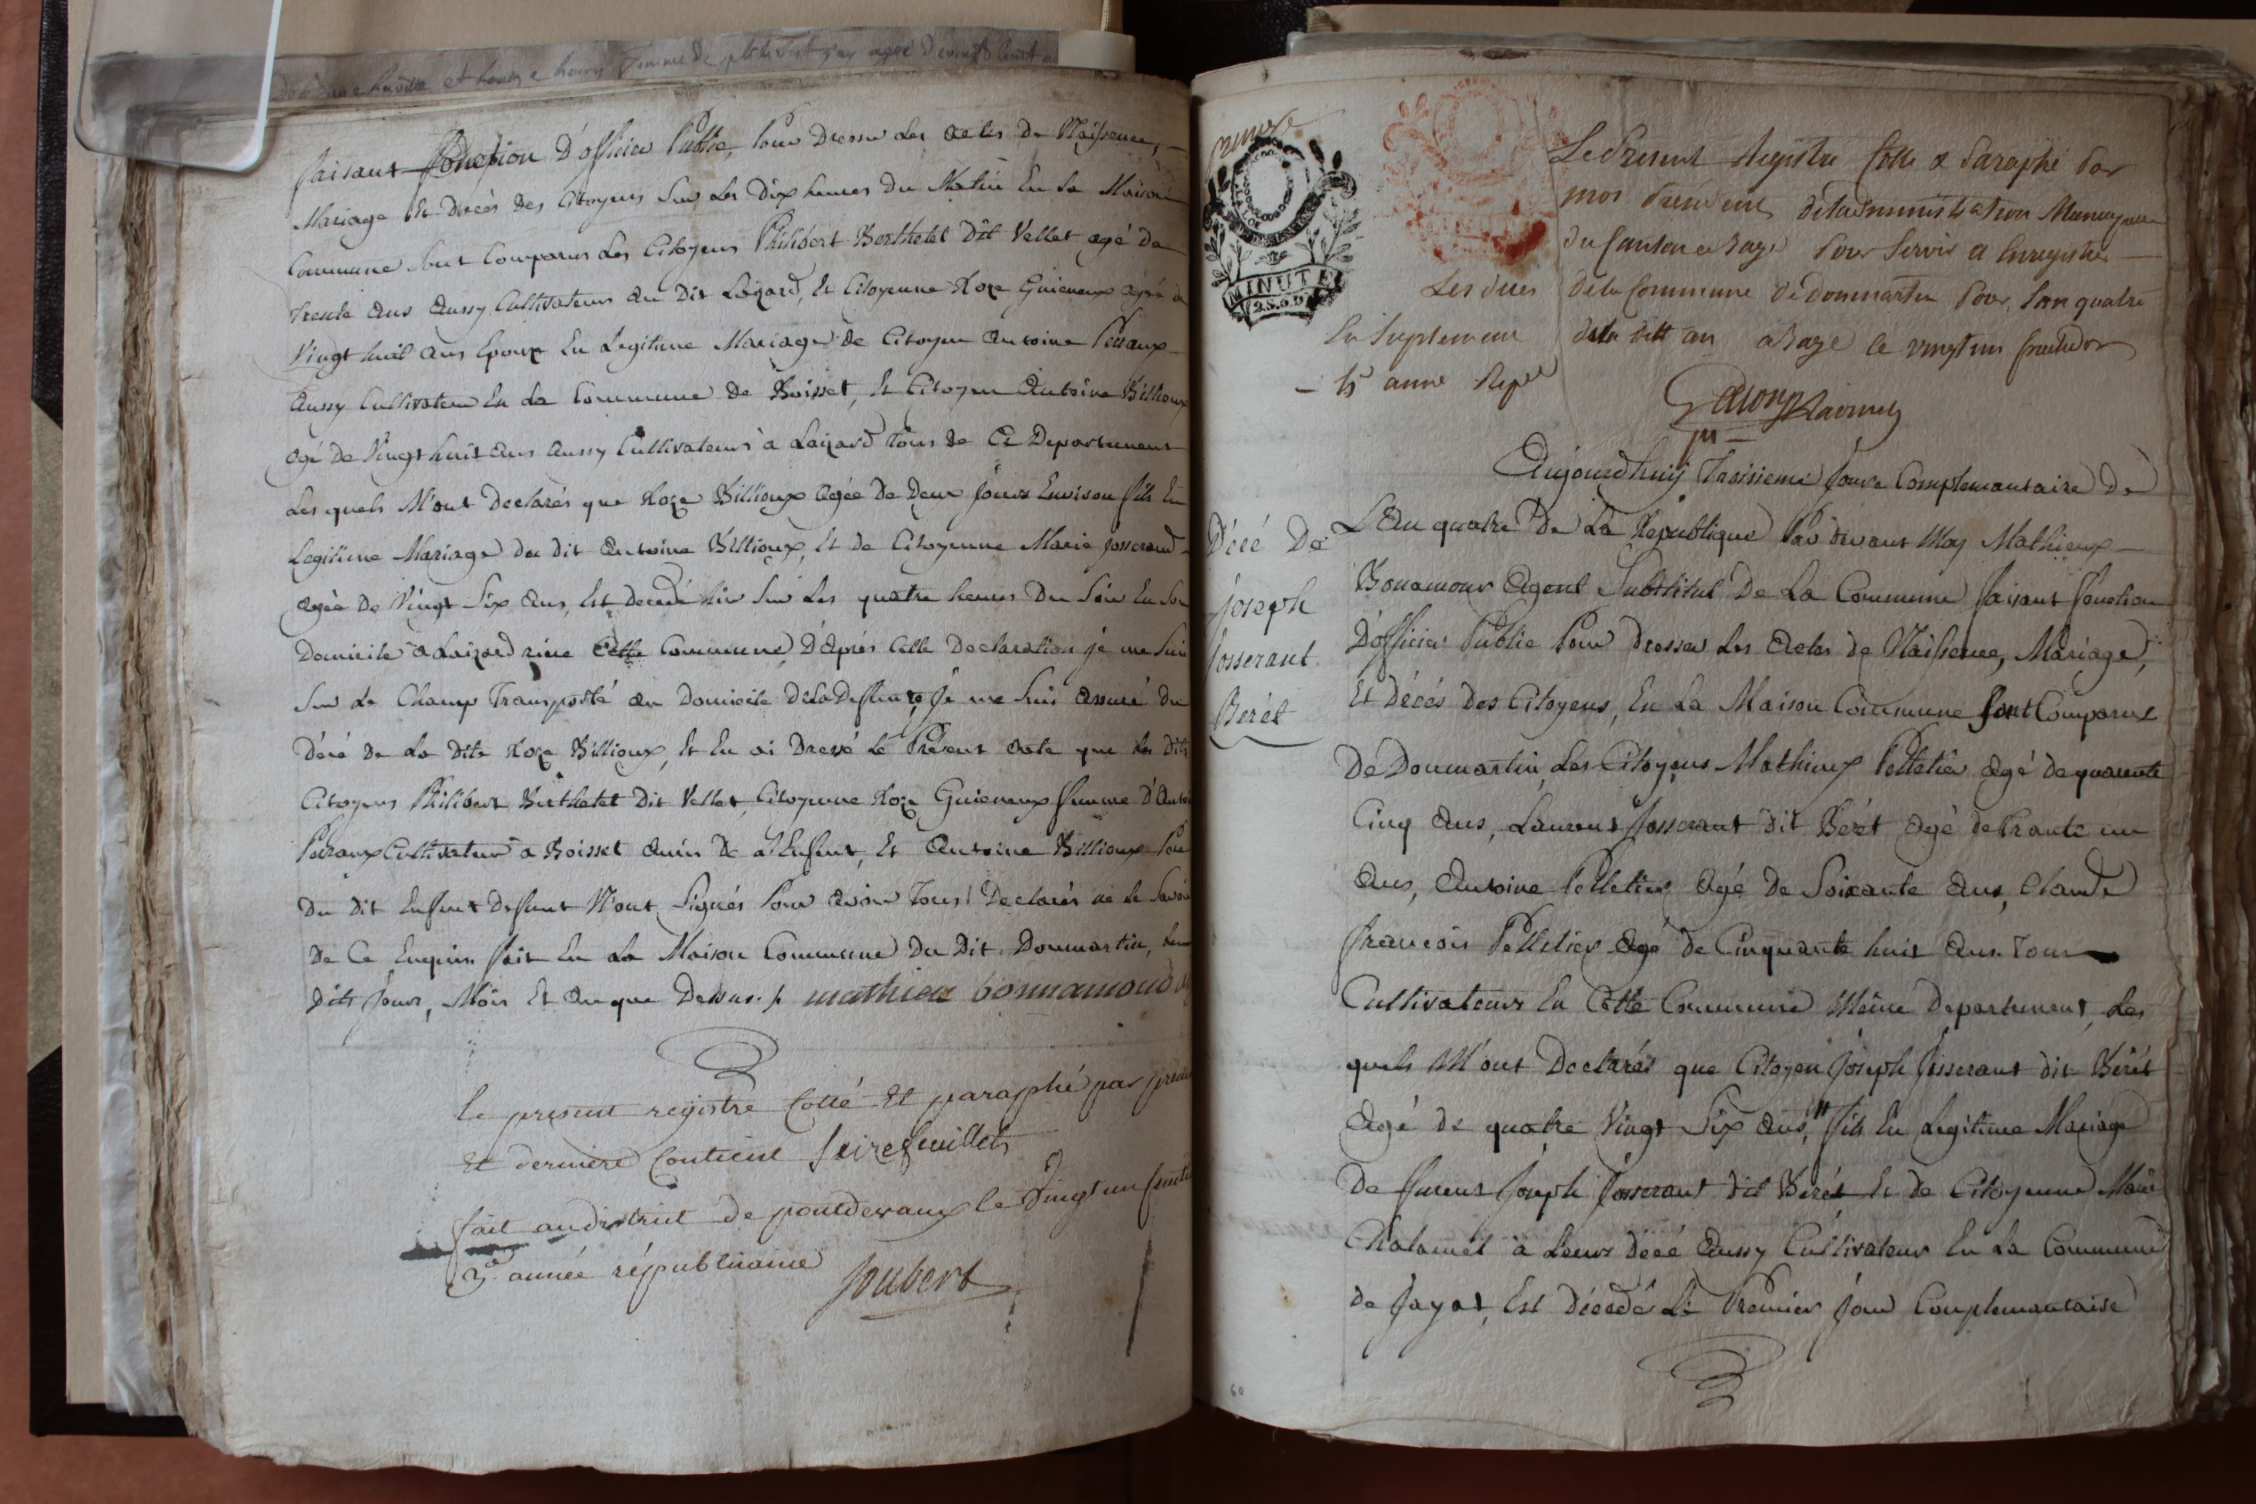 faisant fonction D'officier Public, Pour Dresser Les actes De Naissence,
Mariage Et Décès Des Citoyens Sur Les Dix heures Du Matin En La Maison
Commune Sont Comparus Les Citoyens Philibert Berthelet Dit Vellet agé De
Trente ans Aussy Cultivateur Au Dit Laizard, Et Citoyenne Roze Guieneux agée de
Vingt huit ans Epoux En Legitime Mariage de Citoyen Antoine Peraux
Aussy Cultivateur En La Commune De Boisset, Et Citoyen Antoine Billioux
Agé De Vingt huit ans Aussy Cultivateur à Laizard Tous De Ce Departement
Les quels M'ont Declarés que Roze Billioux Agée De Deux Jours Environ fils En
Legitime Mariage du dit Antoine Billioux, Et de Citoyenne Marie Josserand
agée De Vingt Six Ans, Est decedé hier Sur Les quatre heures Du Soir En Son
Domicile à Laizard rière Cette Commune, D'Après Cette Declaration je me Suis
Sur Le Champ Transporté au Domicile De La Deffunte, Je me Suis Assuré Du
Décé De La Dite Roze Billioux, Et En ai Dressé Le Présent Acte que Les Dits
Citoyens Philibert Berthelet Dit Vellet, Citoyenne Roze Guieneux femme D'Antoi
Peraux Cultivateur à Boisset Amis De L'Enfent, Et Antoine Billioux Pere
Du Dit Enfent Deffunt N'ont Signés Pour Avoir Tous Declarés ne Le Savoir
De Ce Enquis. fait En La Maison Commune Du Dit Dommartin, Les
Dits Jour, Mois Et An que Dessus. mathieu bonnamoud
le present registre Cotté Et paraphé par premi
Et derniere Contient Seize feuillets
fait au district de pontdevaux le Vingt un fructid
3e année républicaine
Joubert
Le Present Registre Cotte & Paraphé Par
moi President de L'administration Municipalle
du Canton de Bagé Pour Servir a Enregistrer
Les Deces de la Commune de dommartin Pour Lan quatre
En Suplement de la ditt an a Bagé Le vingt un fructidor
4e anné Repe
Décé De
Joseph
Josserant
Berét
MINUTE
Aujourdhuij Troisieme Jour Complemantaire De
L'An quatre De La Republique Par devant Moy Mathieux
Bonamour Agent Substitut De La Commune faisant fonction
D'officier Public Pour Dresser Les Actes de Naissence, Mariage,
Et Décés Des Citoyens, En La Maison Commune Sont Comparus
De Dommartin Les Citoyens Mathieux Pelletier Agé De quarente
Cinq Ans, Laurent Josserant Dit Berét Agé De Trante un
Ans, Antoine Pelletier Agé De Soixante Ans, Claude
francois Pelletier Agé De Cinquante huit Ans Tous
Cultivateurs En Cette Commune Même Departement, Les
quels M'ont Declarés que Citoyen Joseph Josserant dit Bérét
Agé de quatre Vingt Six Ans, fils En Legitime Mariage
De furent Joseph Josserant dit Berét Et De Citoyenne Marie
Chalamel à Leurs décé Aussy Cultivateur En La Commune
de Jayat, Est Décedé Le Premier Jour Complemantaire
60